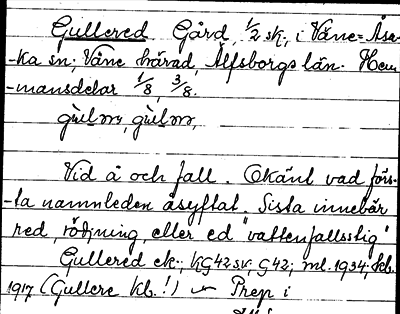 Gullered Gård, 1/2 sk., i Väne-Åsa-
-ka sn; Väne härad, Älfsborgs län. Hem-
-mansdelar 1/8, 3/8.
Vid å och fall. Okänt vad förs-
-ta namnleden åsyftat. Sista innebär
red, rödjning, eller ed "vattenfallsstig"
Gullered ek.; KG42sv, G42; ml. 1934; kb.
1917 (Gullere kb.!) ~ Prep i